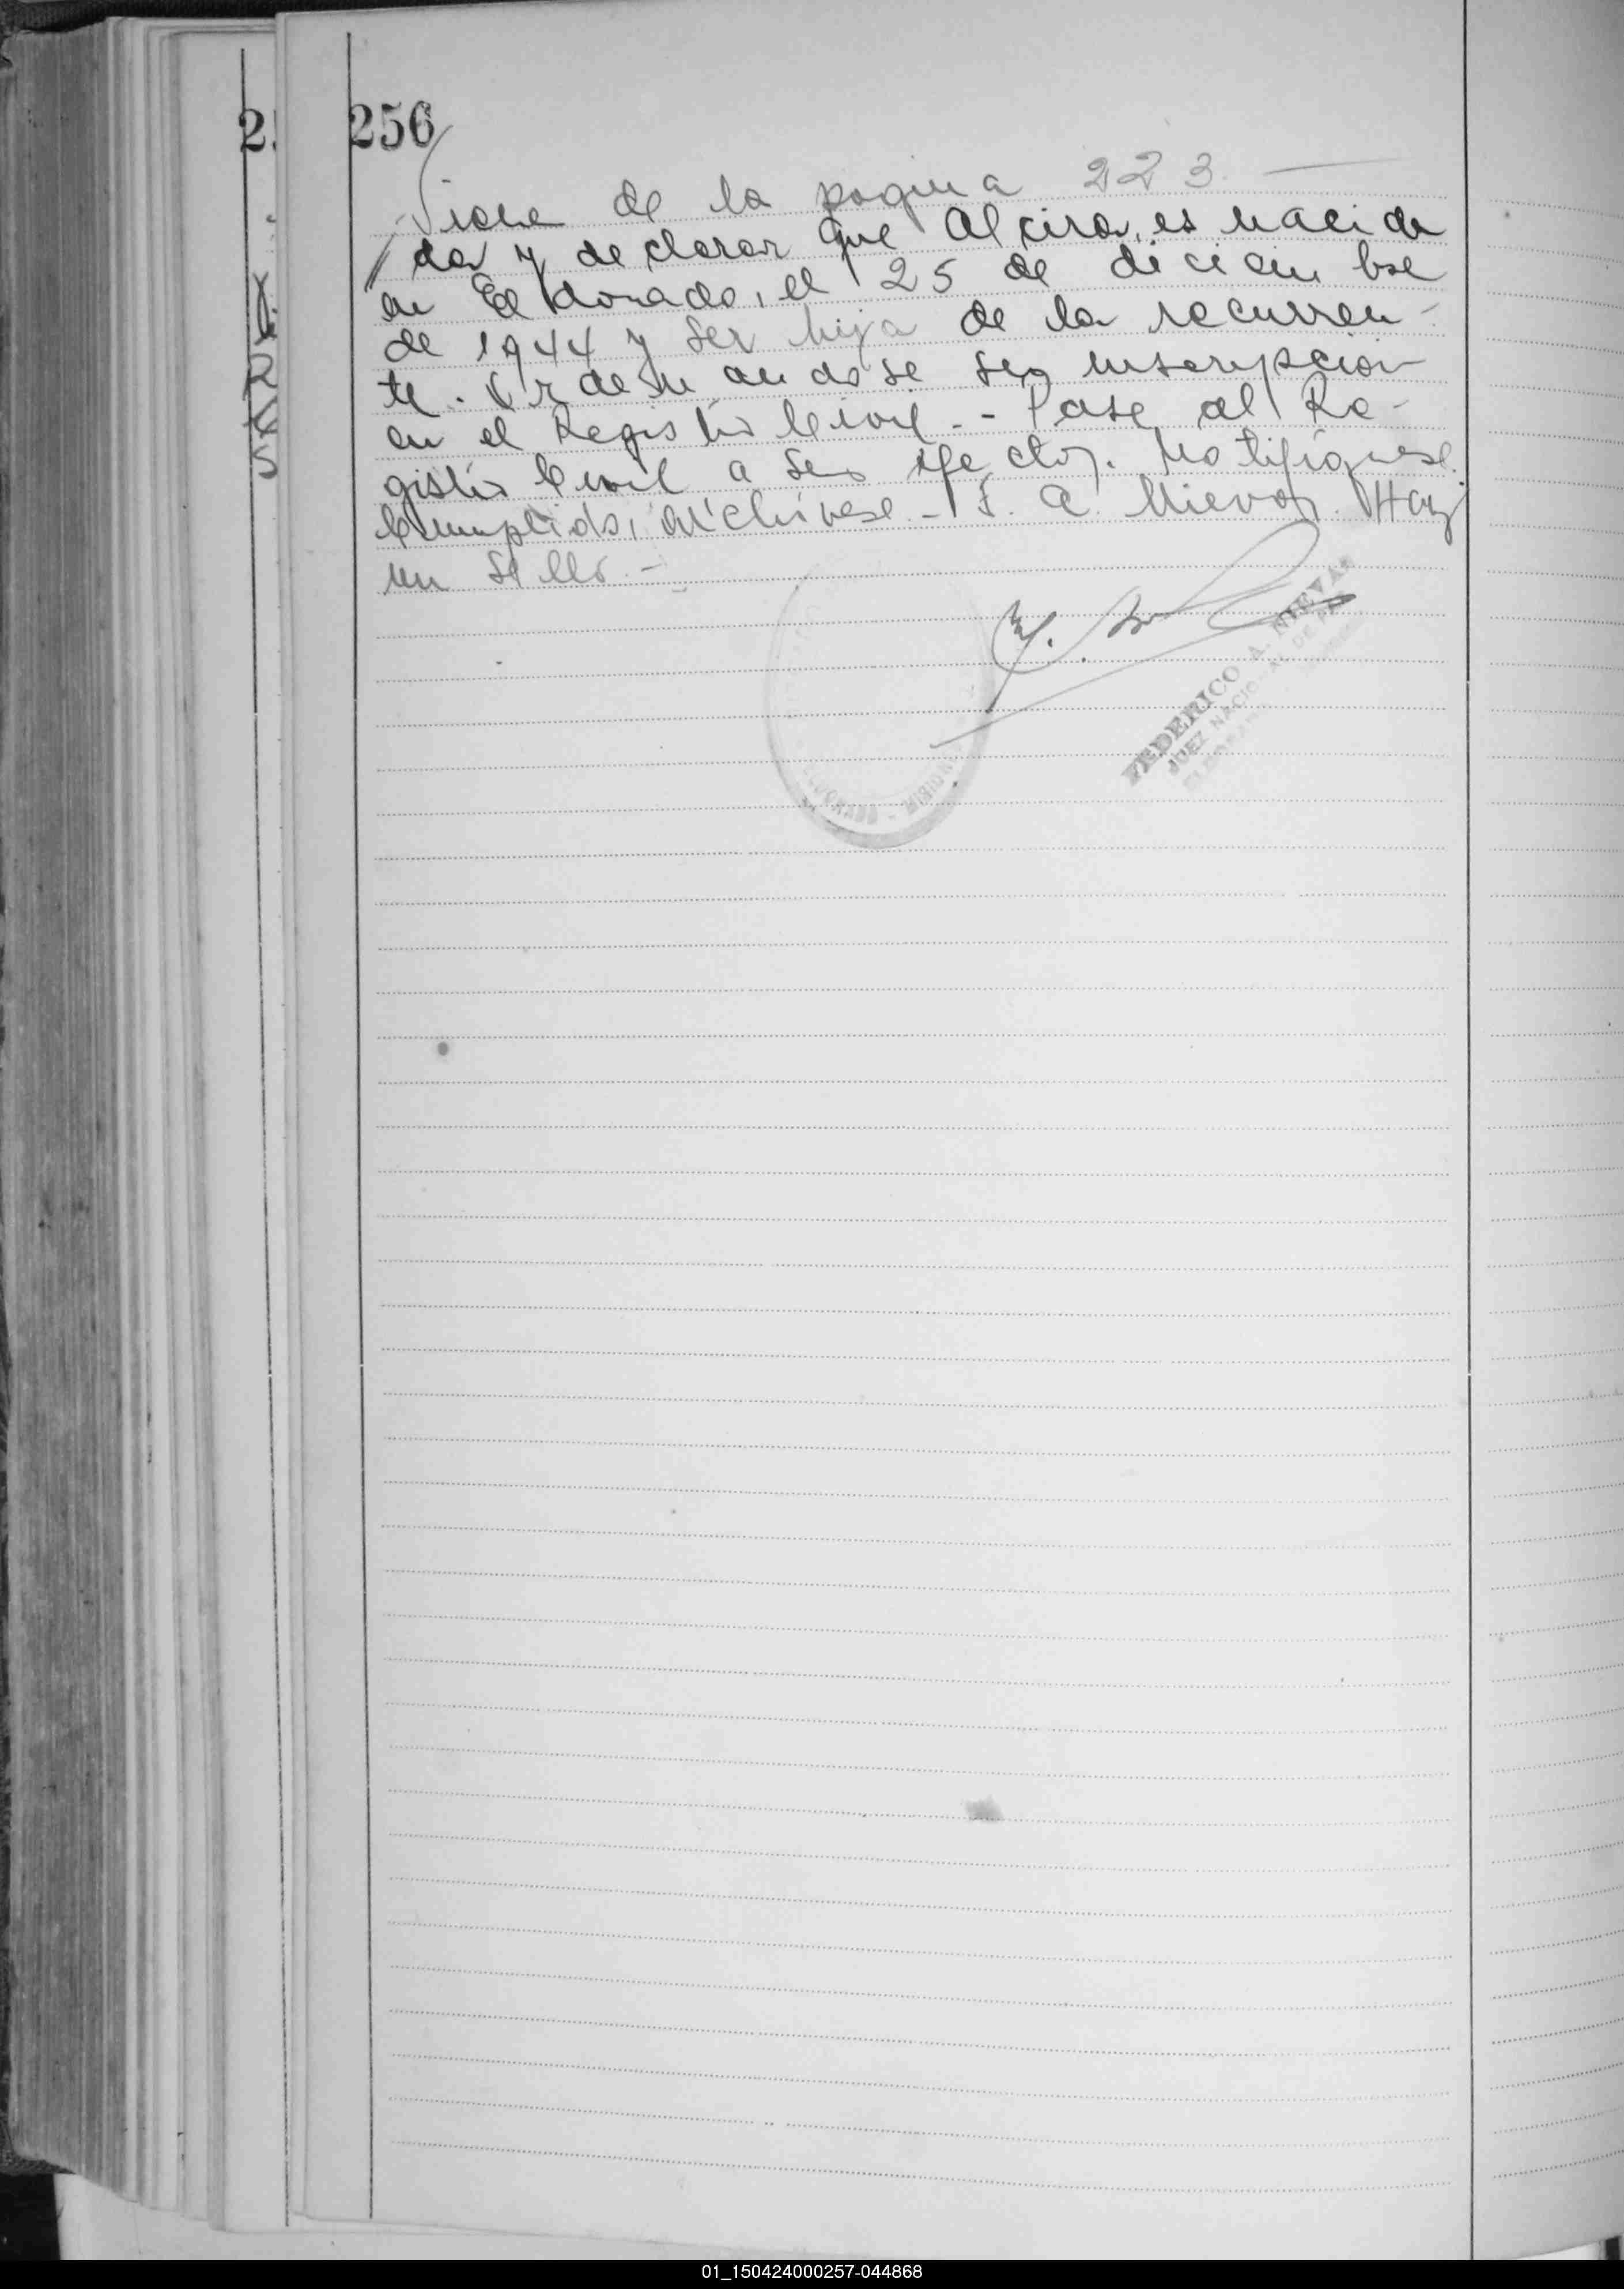 256
Viene de la pagina 223.—
da y declarar que Alcira, es nacida
en El dorado, el 25 de diciembre
de 1944 y ser hija de la recurren-
te. Ordenandose su inscripcion
en el Registro Civil.- Pase al Re-
gistro Civil a sus efectos. Notifíquese.
Cumplido, archívese.- F. A. Nievas. Hay
un sello.-
FEDERICO A. NIEVAS
JUEZ NACIONAL DE PAZ
ELDORADO
ELDORADO - MISIONES
01_150424000257-044868